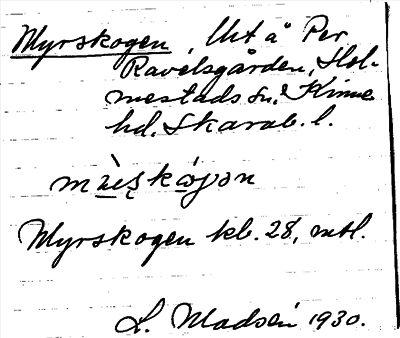 Myrskogen, Urt å Per
Ravelsgården, Hol-
mestads sn. Kinne
hd. Skarab. l.
Myrskogen kb. 28, mtl.
L. Madsén 1930.